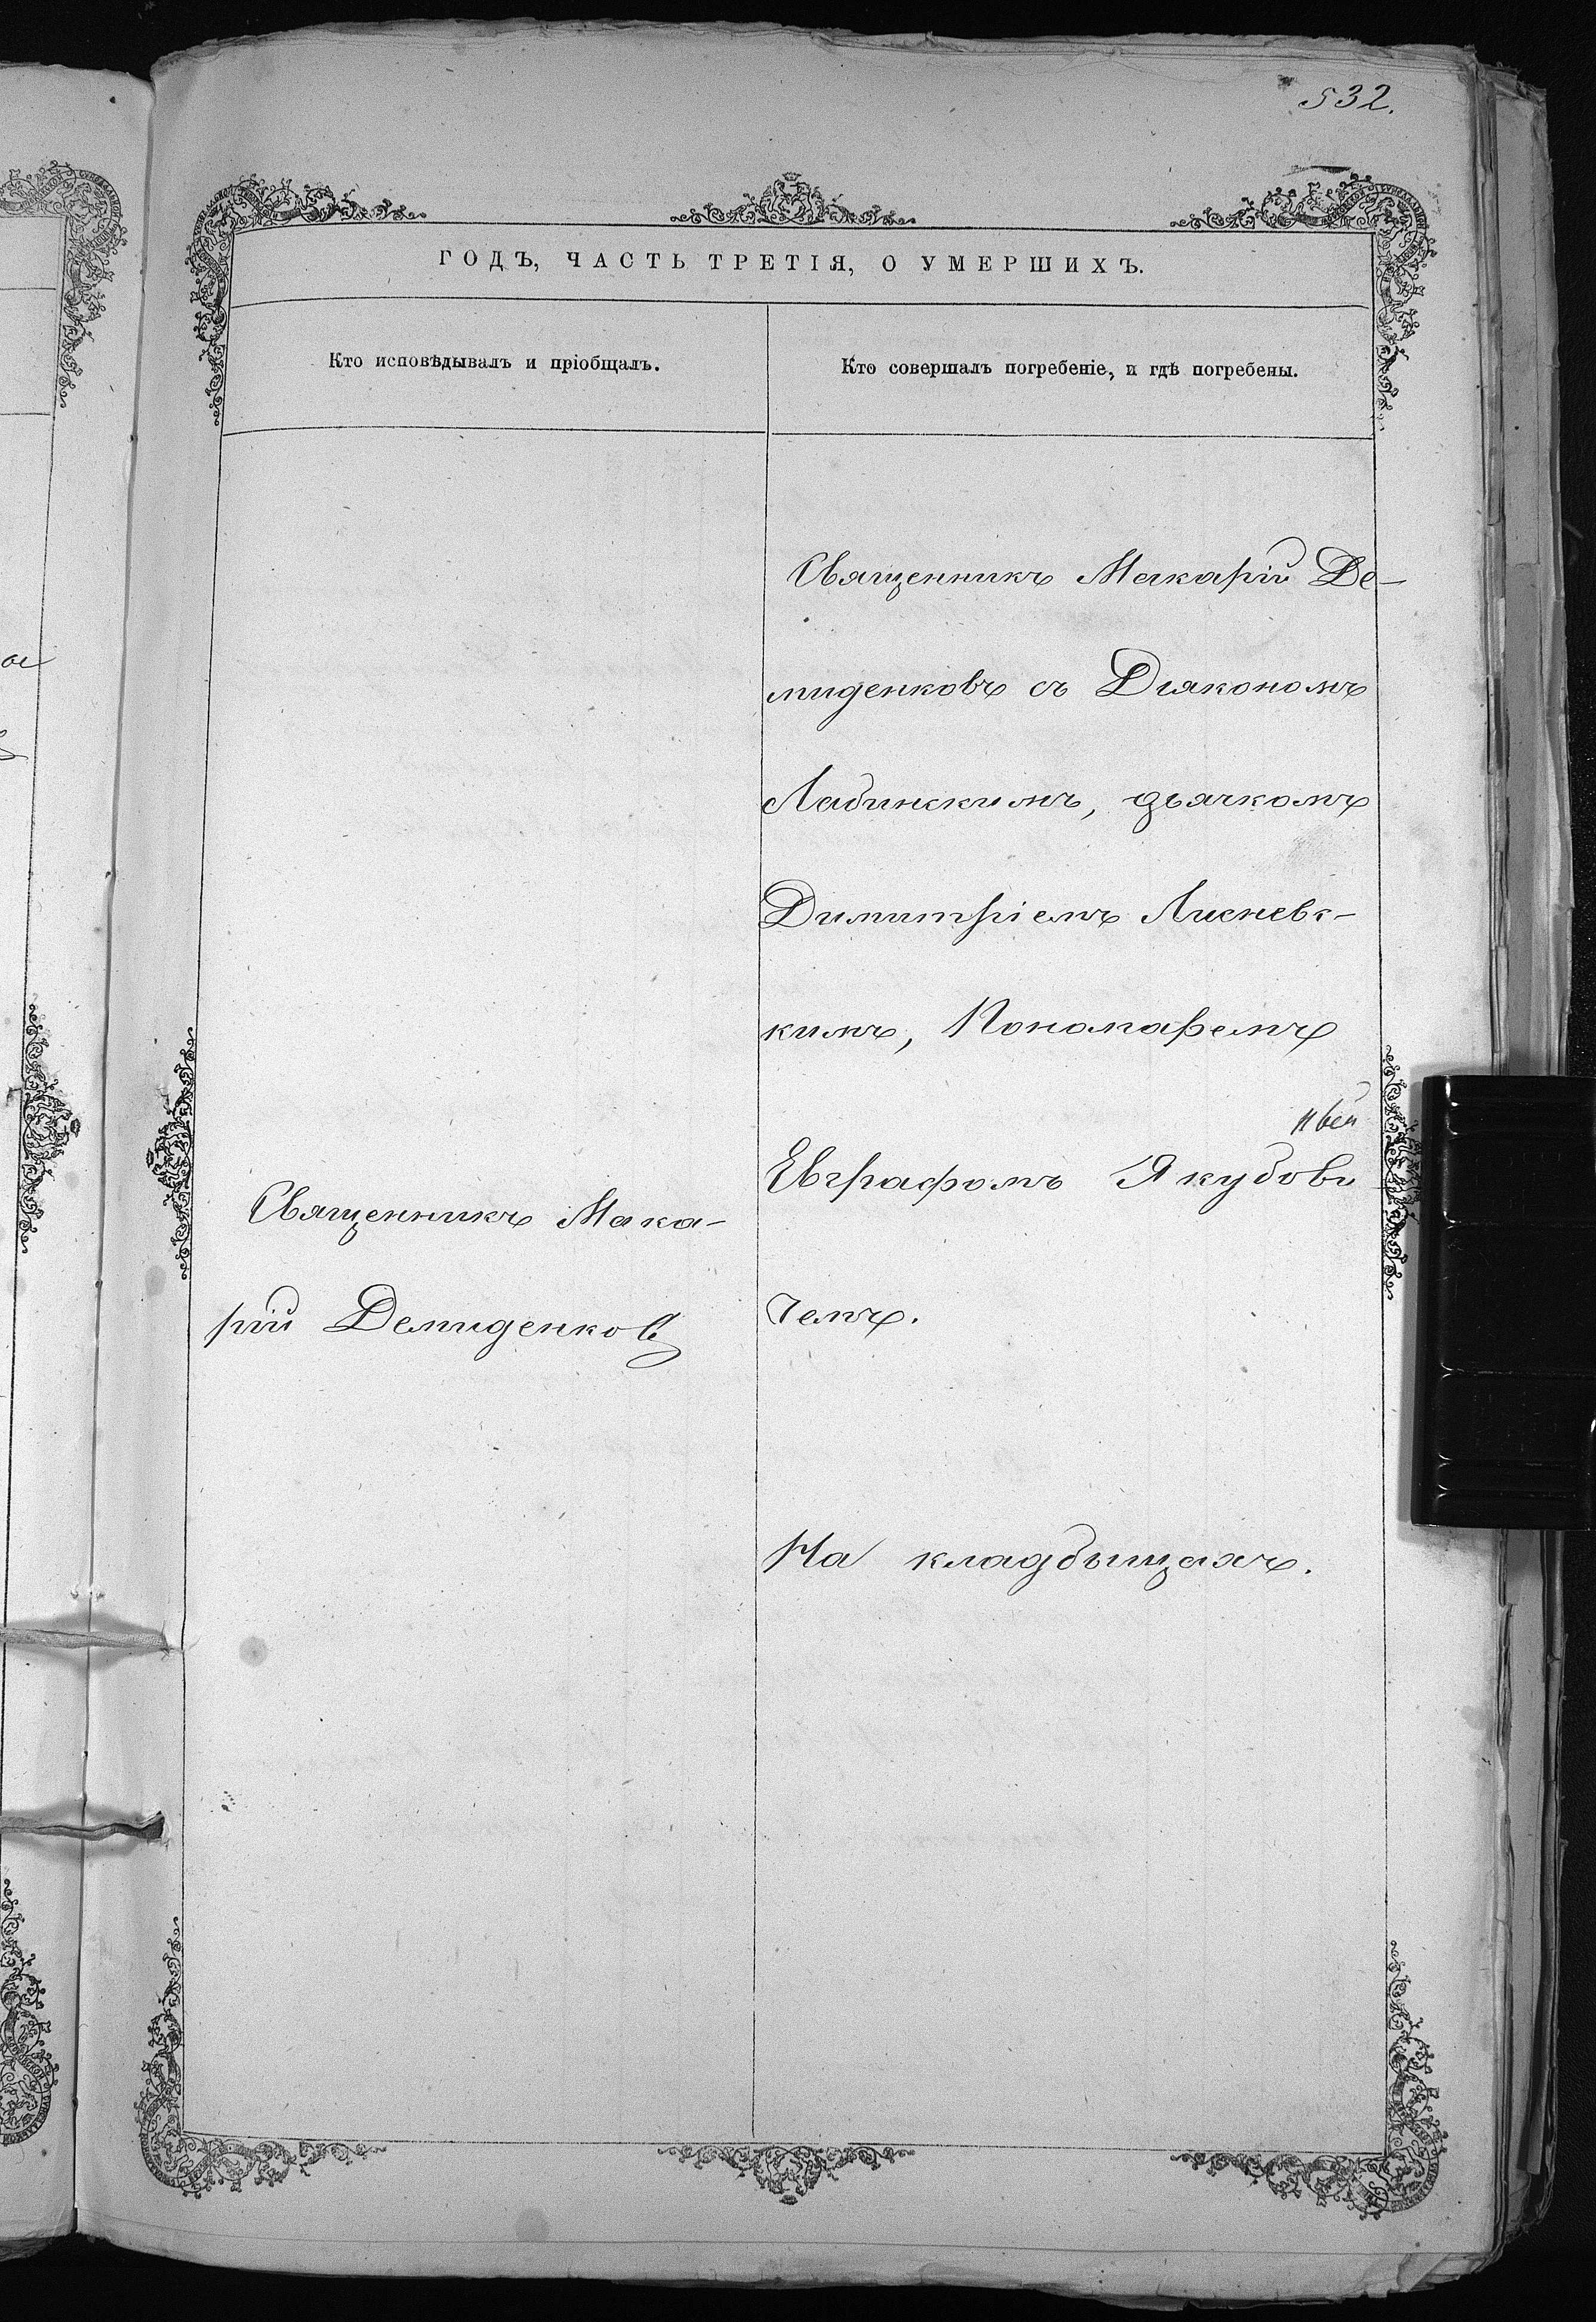 532.
ГОДЪ, ЧАСТЬ ТРЕТІЯ, О УМЕРШИХЪ.
Кто исповѣдывалъ и пріобщалъ.
Кто совершалъ погребеніе, и гдѣ погребены.
Священникъ Мака-
рій Демиденковъ
Священникъ Макарій Де-
миденковъ съ Діякономъ
Лабинскимъ, дьячкомъ
Димитріемъ Лисневс-
кимъ, Пономаремъ
Евграфомъ Якубови
чемъ.
На кладбыщахъ.